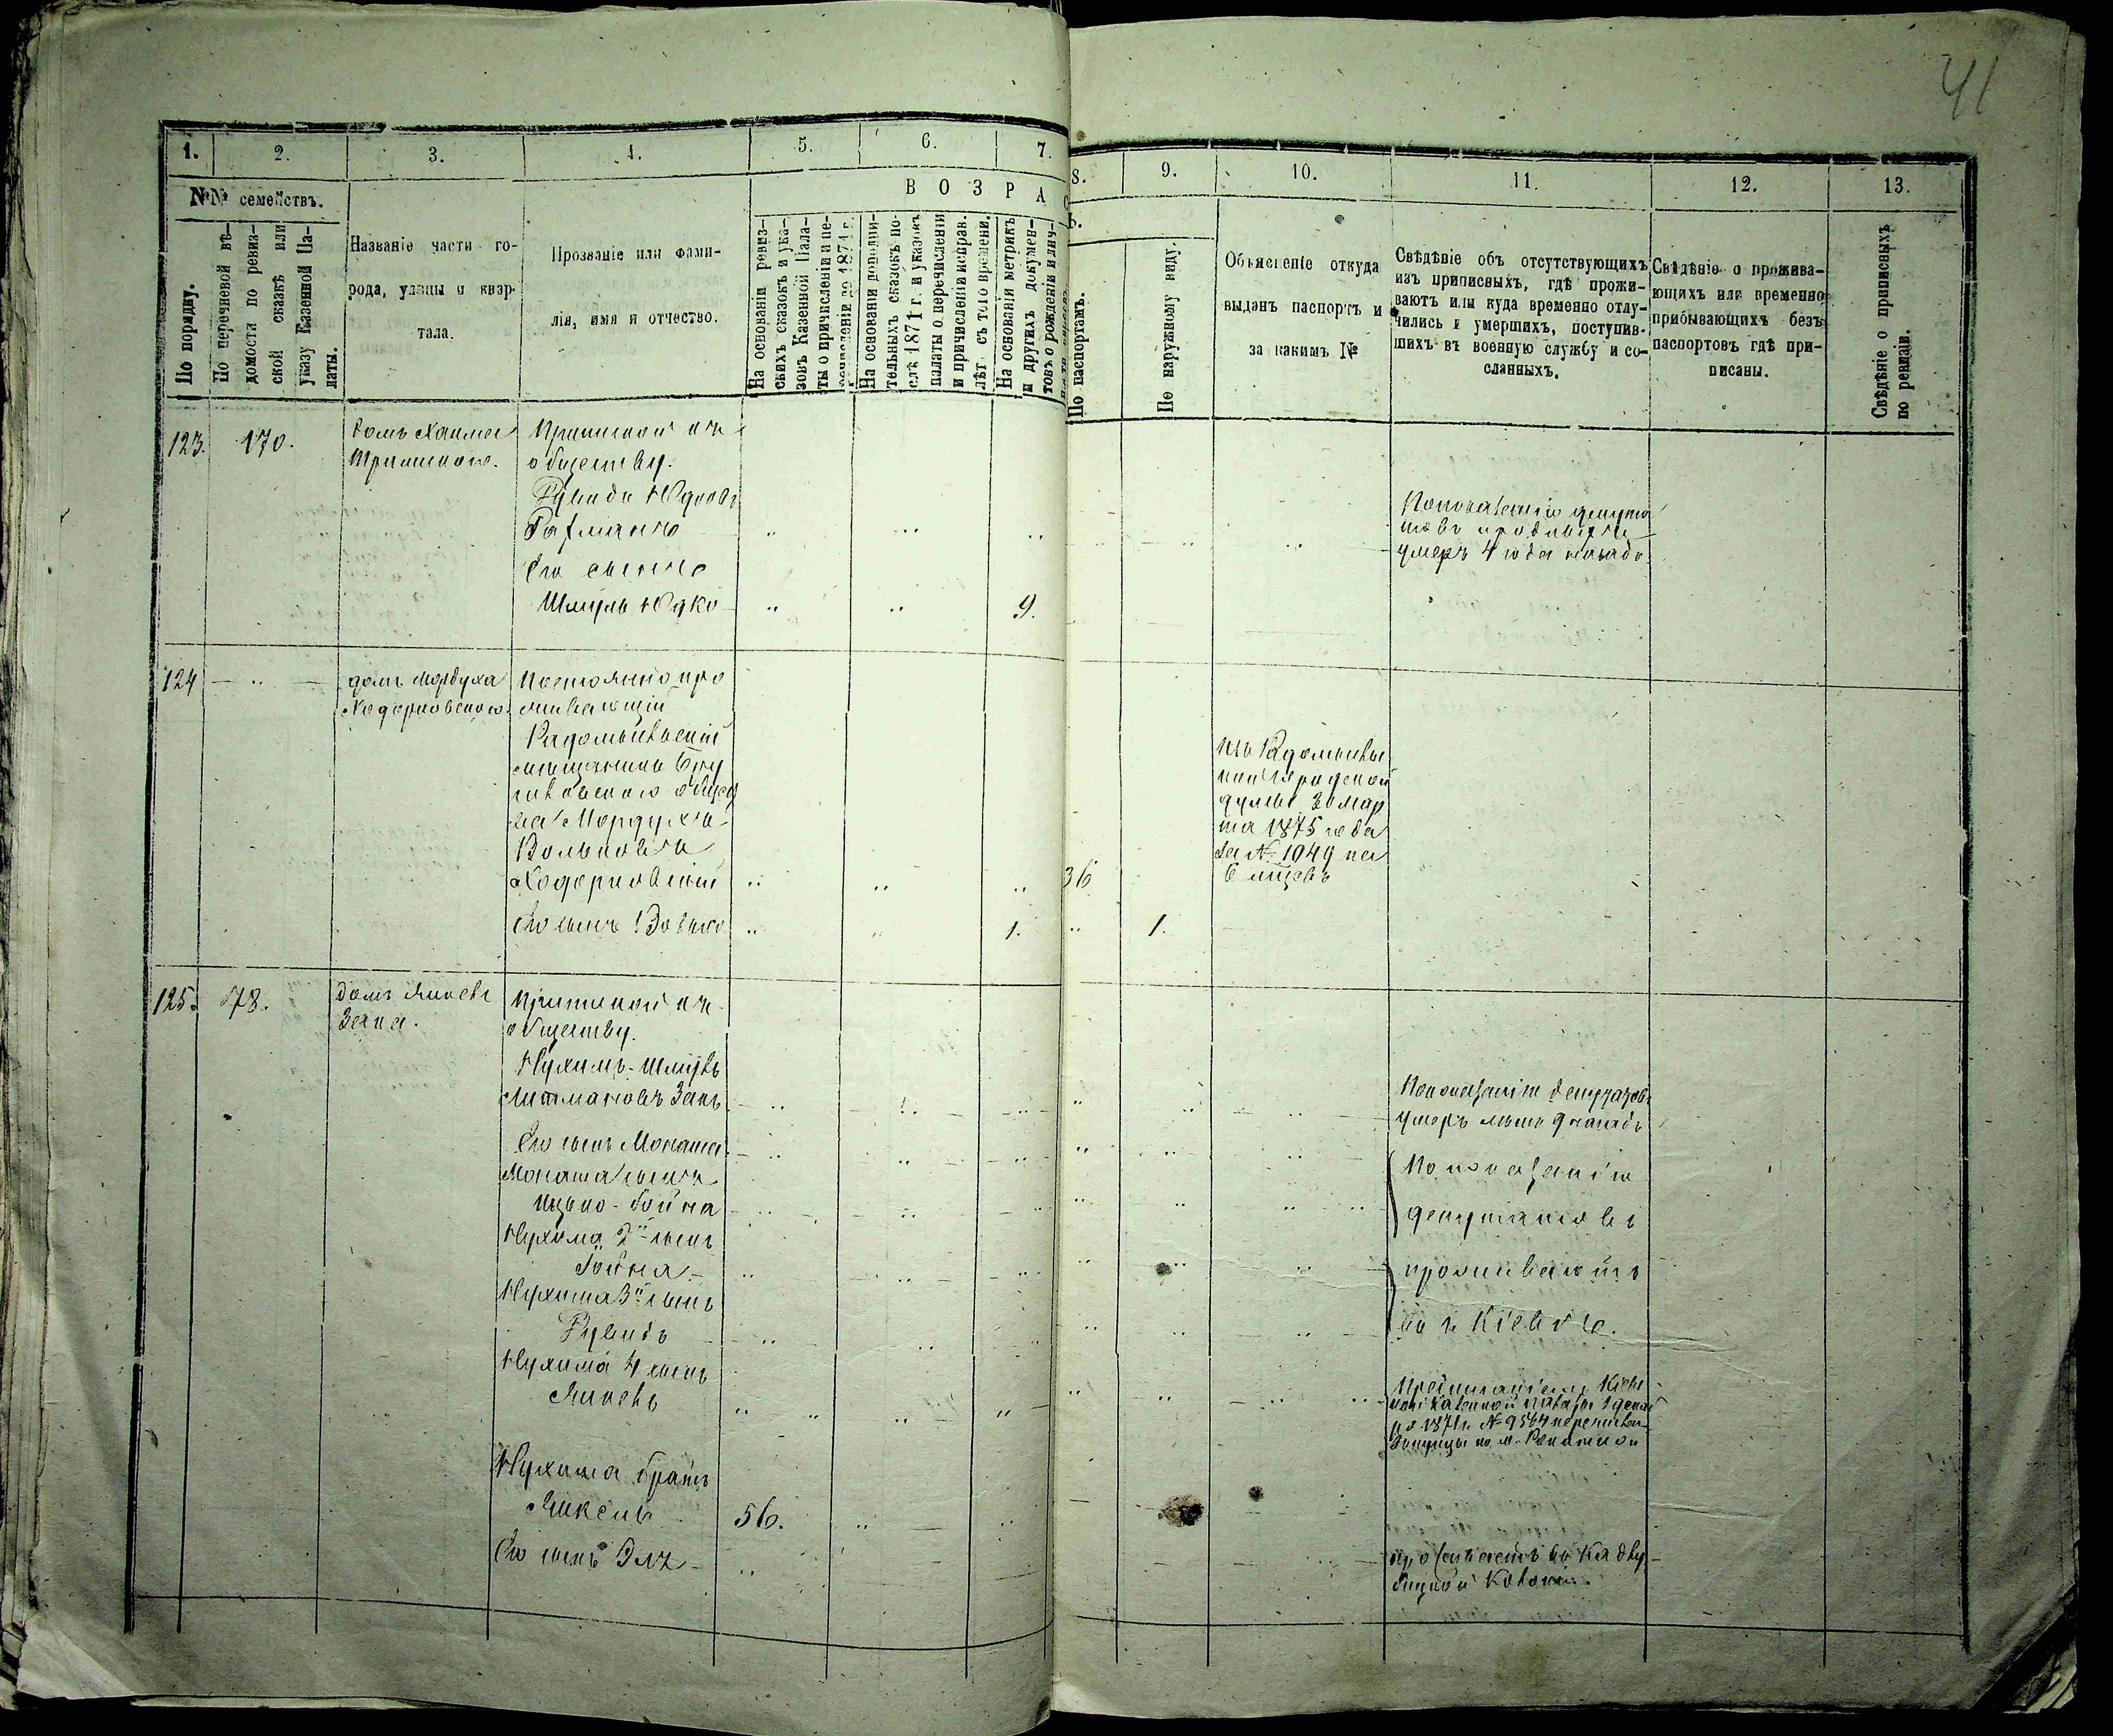 41
1.
2.
3.
4.
5.
6.
7.
8.
9.
10.
11.
12.
13.
№№ семействъ.
По порядку.
По перечневой вѣ-
домости по ревиз-
ской сказкѣ или
указу Казенной Па-
латы.
Названіе части го-
рода, улицы и квар-
тала.
Прозваніе или фами-
лія, имя и отчество.
ВОЗРАС
Ъ.
На основаніи ревиз-
скихъ сказокъ и ука-
зовъ Казенной Пала-
ты о причисленіи и пе-
речисленіи до 1871 г.
На основаніи дополни-
тельныхъ сказокъ по-
слѣ 1871 г. и указовъ
палаты о перечисленіи
и причисленіи исправ.
лѣт съ того времени.
На основаніи метрикъ
и другихъ докумен-
товъ о рожденіи и лич-
По паспортамъ.
По наружному виду.
Объясненіе откуда
выданъ паспортъ и
за какимъ №
Свѣдѣніе объ отсутствующихъ
изъ приписныхъ, гдѣ прожи-
ваютъ или куда временно отлу-
чились и умершихъ, поступив-
шихъ въ военную службу и со-
сланныхъ.
Свѣдѣніе о прожива-
ющихъ или временно
прибывающихъ безъ
паспортовъ гдѣ при-
писаны.
Свѣдѣніе о приписныхъ
по ревизіи.
123. 170.
домъ Хаима
Приписной къ
обществу.
Рувинъ Юдковъ
Его сынъ
Шмуль Юдко 9.
По показанію депута
товъ
умеръ 4 года назадъ
124
домъ Мордуха
Ходорковскаго.
Постоянно про
живающій
Радомысльскій
мѣщанинъ Бру
силовскаго общес
ва Мордухъ
Вольковъ
Ходорковскій 36
изъ Радомысль
ской городской
думы 3 мар
та 1875 года
за № 1049 на
6 мѣцовъ
Его сынъ Волько 1. 1.
125. 78.
домъ Янкеля
Зака.
Приписной къ
обществу.
Нухимъ-Шмуль
Литмановъ Закъ
По показанію депутатовъ
умеръ лѣтъ 9 назадъ
Его сынъ Монаша
Монаша сынъ
Ицько-Гойна
Нухима 2й сынъ
Гойна
Нухима 3й сынъ
Рувинъ
По показанію
депутатовъ
проживаютъ
въ г. Кіевѣ.
Нухима 4 сынъ
Янкель
Кіевс
кой Казенной палаты 1 дека
ря 1871 г. № 9564
Нухима братъ
Янкель 56.
Его сынъ Эля